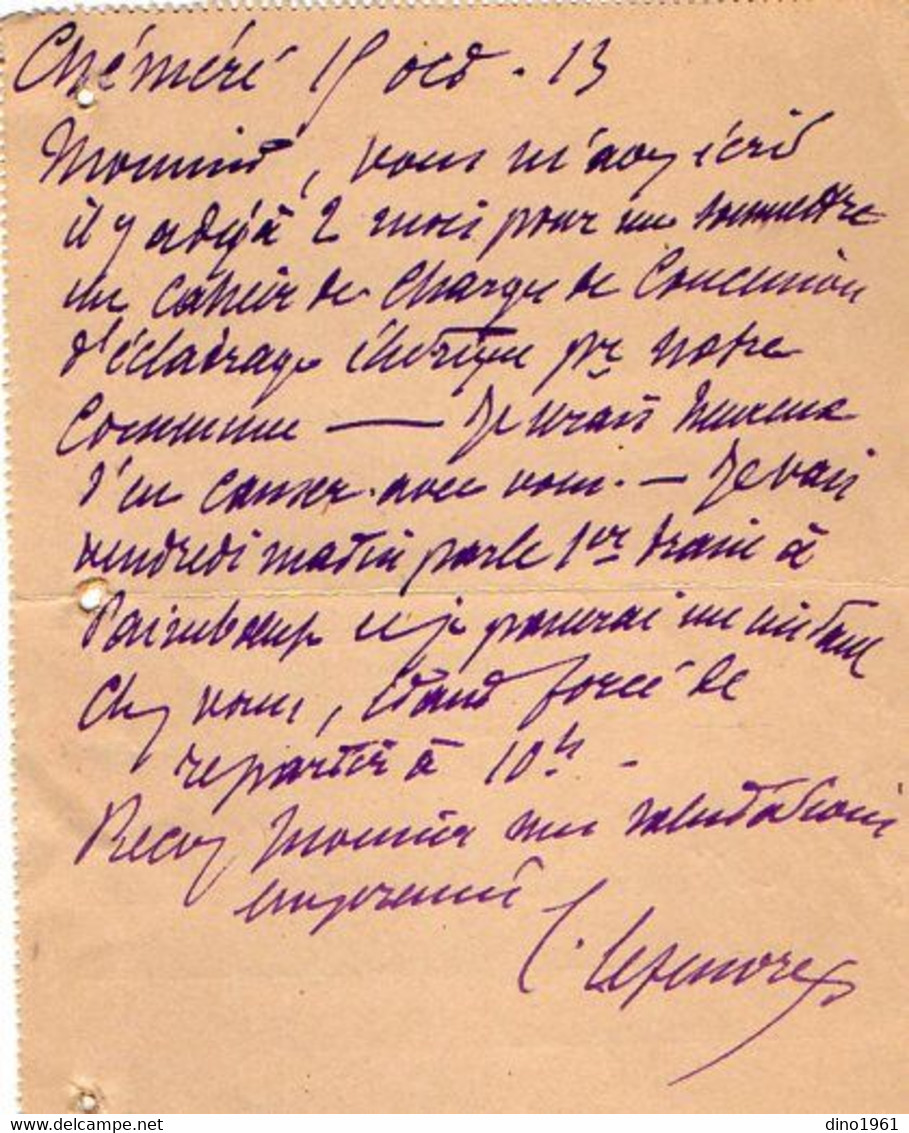 Chéméré 15 oct. 13
Monsieur, vous m'avez écrit
il y a déjà 2 mois pour me soumettre
un cahier de charges de concession
d'éclairage électrique pr notre
commune — Je serais heureux
d'en causer avec vous. — Je vais
vendredi matin par le 1er train à
Paimboeuf et je passerai un instant
chez vous, étant forcé de
repartir à 10h -
Recevez Monsieur mes salutations
empressées
dino1961